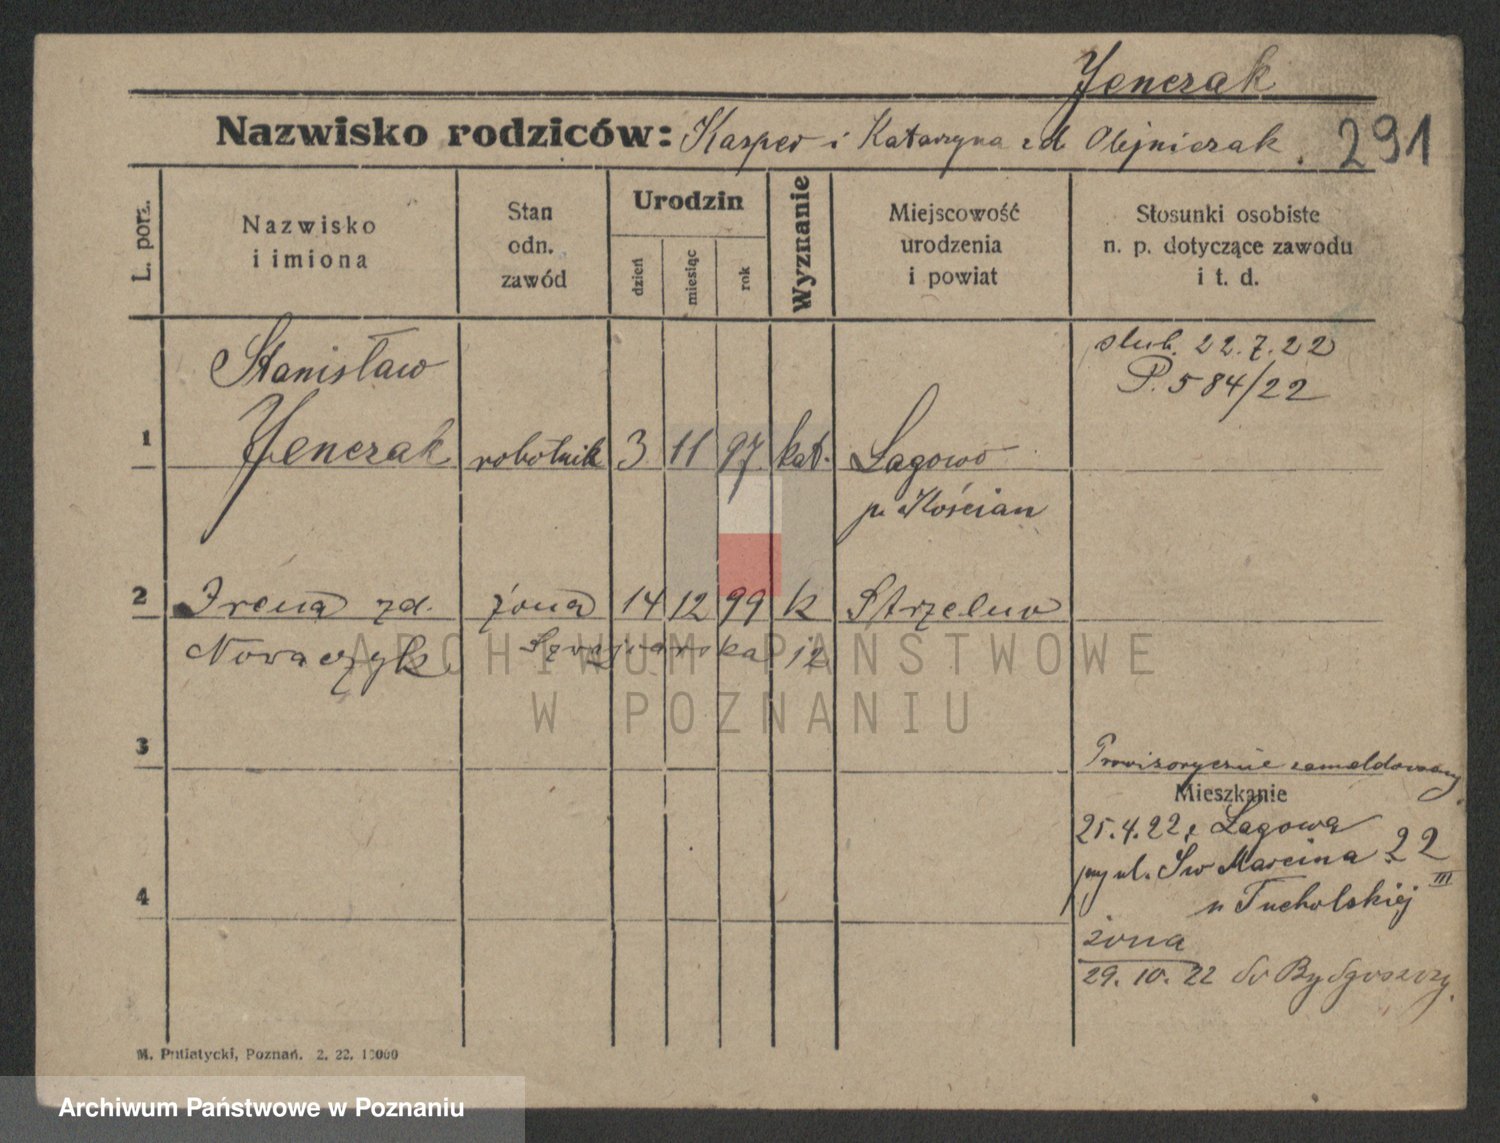 Jenczak
Nazwisko rodziców: Kasper i Katarzyna zd Olejniczak. 291
L. porz.
Nazwisko
i imiona
Stan
odn.
zawód
Urodzin
dzień
miesiąc
rok
Wyznanie
Miejscowość
urodzenia
i powiat
Stosunki osobiste
n. p. dotyczące zawodu
i t. d.
ślub. 22.7.22
P. 584/22
Stanisław
1 Jenczak robotnik 3 11 97 kat. Łagowo
p. Kościan
2 Irena zd. żona 14 12 99 k Strzelno
Nowaczyk 12
3
Prowizorycznie zameldowany
Mieszkanie
25.4.22 z Łagowa
przy ul. Św Marcina 22 III
u Tucholskiej
4
żona
29. 10. 22 do Bydgoszczy.
M. Putiatycki, Poznań. 2. 22. 10000
ARCHIWUM PAŃSTWOWE
W POZNANIU
Archiwum Państwowe w Poznaniu